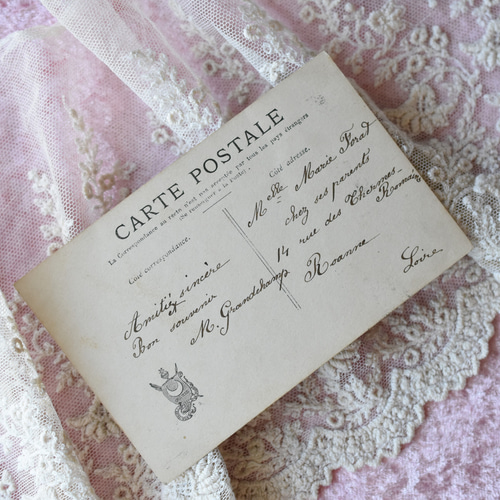 CARTE POSTALE
La Correspondance au recto n'est pas acceptée par tous les pays étrangers
(Se renseigner à la Poste).
Côté correspondance.
Côté adresse.
Amitié sincère
et
Bon souvenir
M. Grandchamp
Melle Marie Forat
chez ses parents
14 rue des Thermes-
Romains
Roanne
Loire